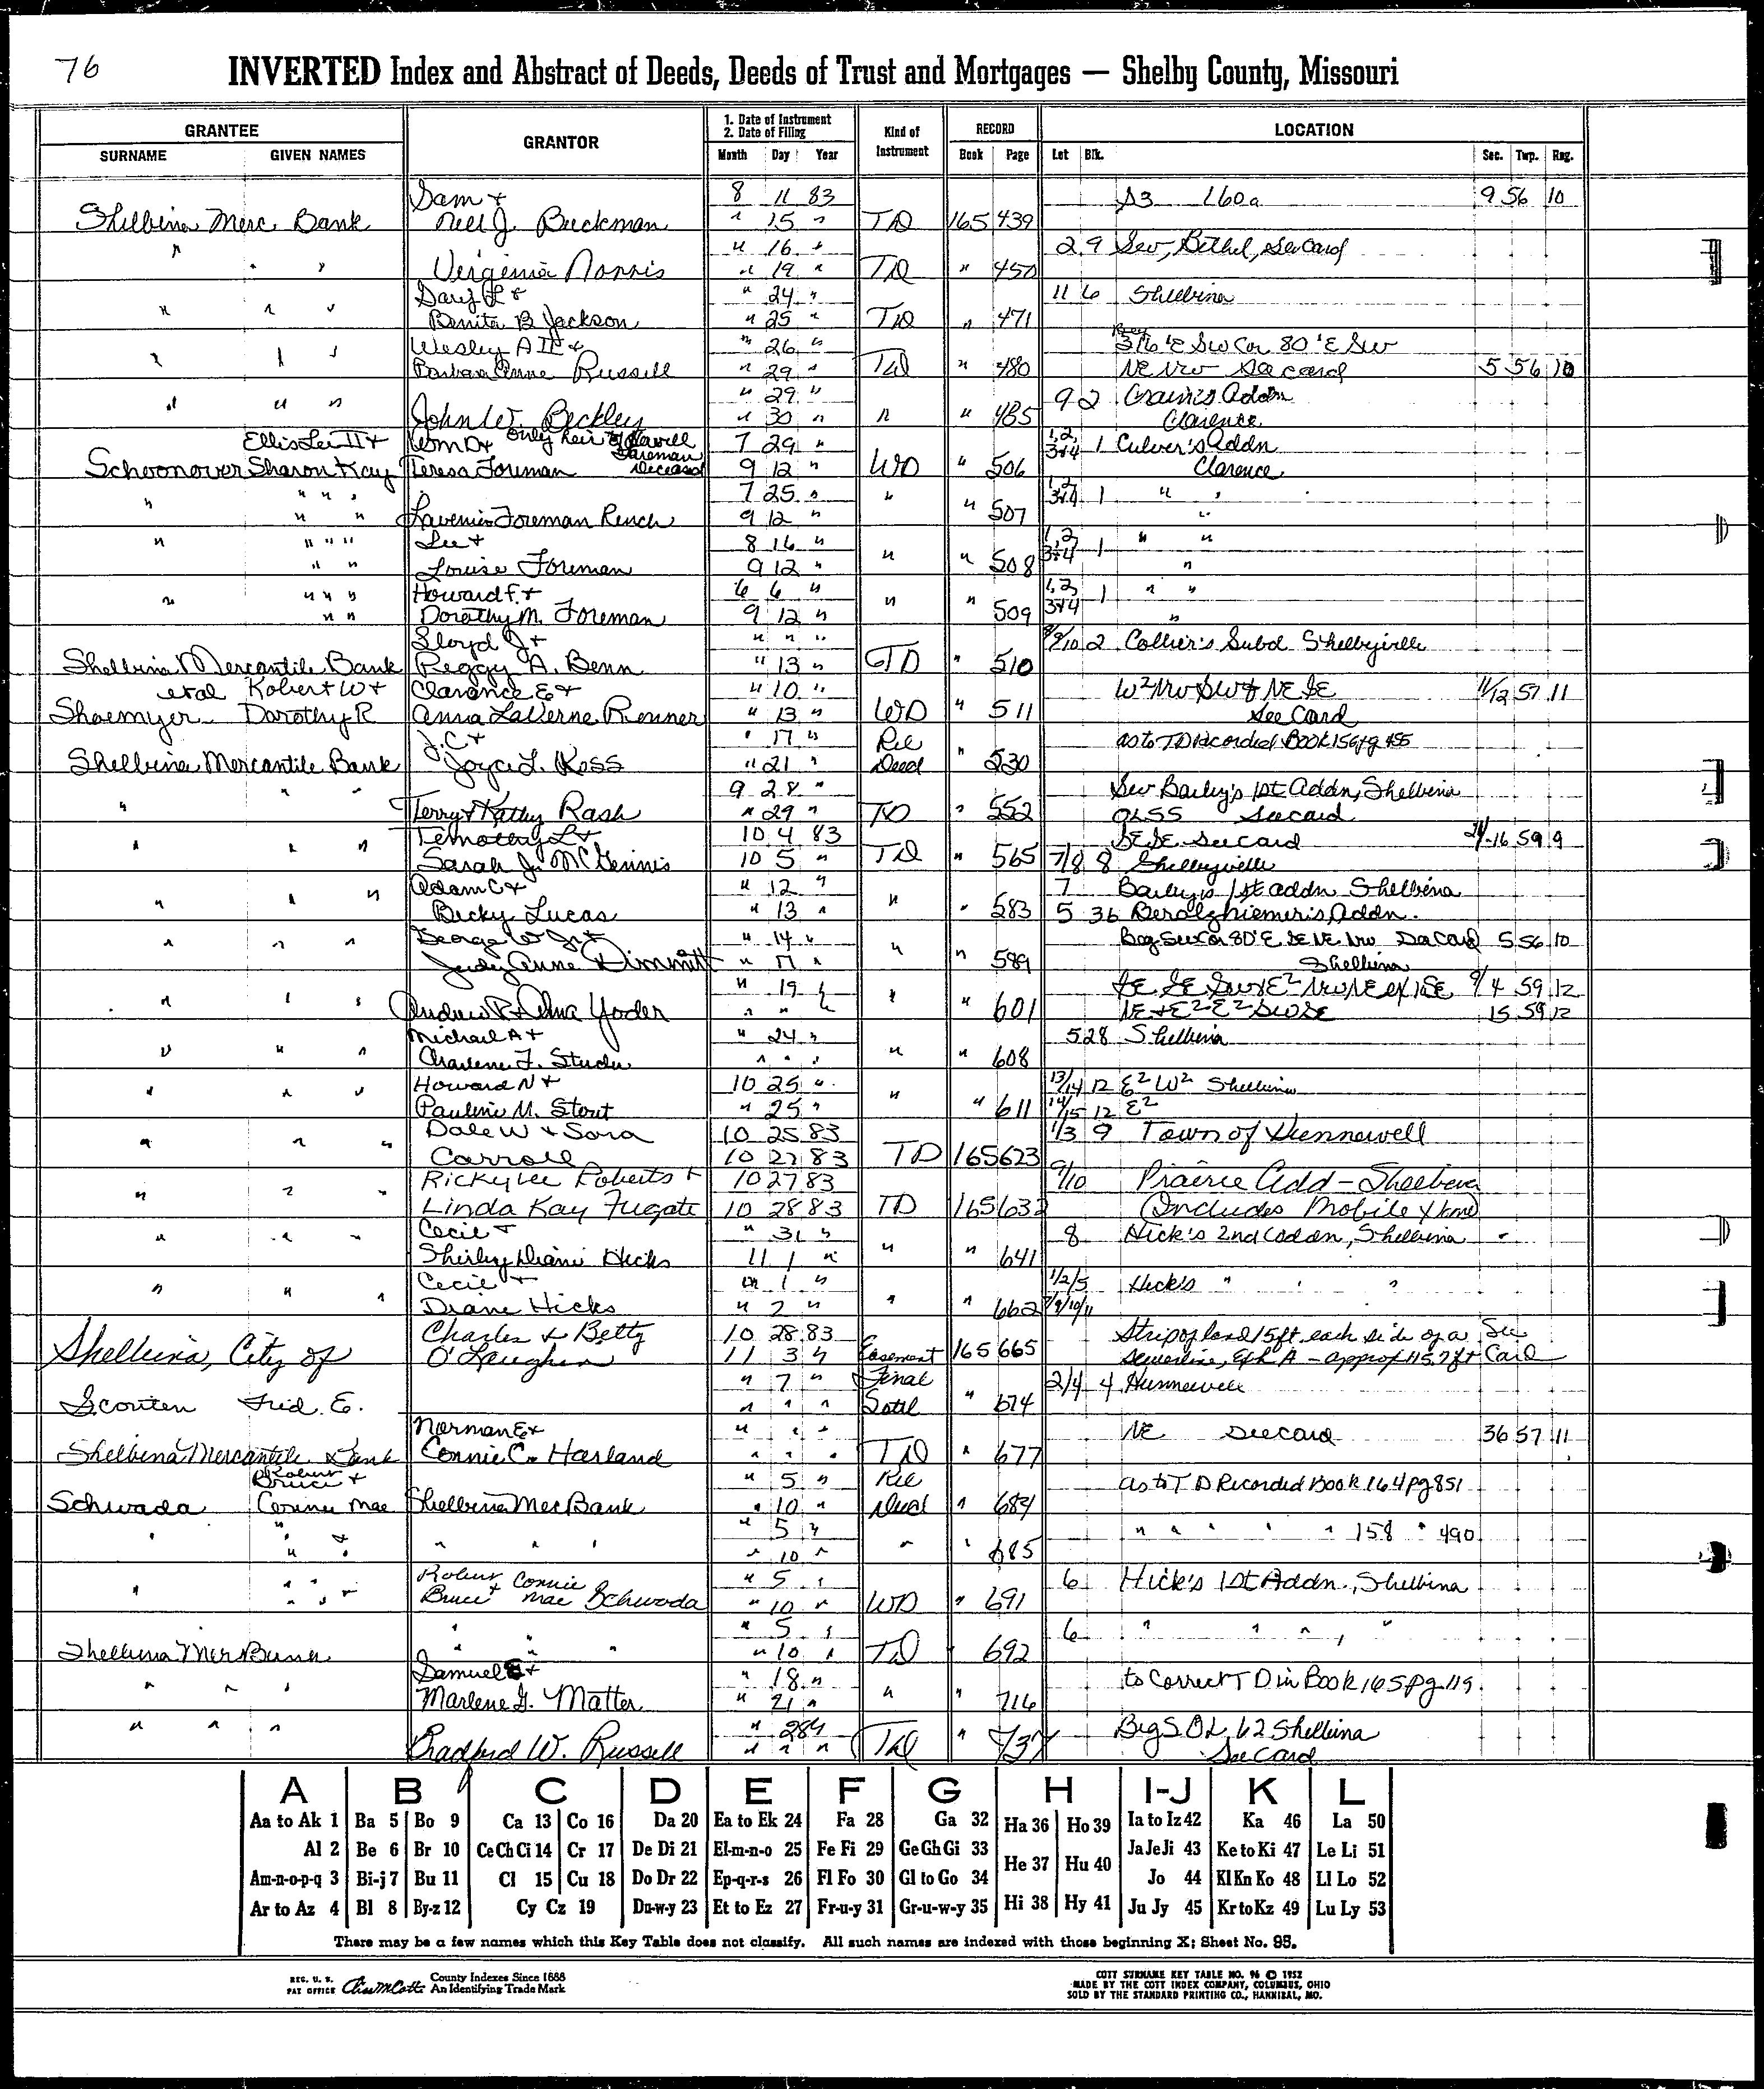 76
INVERTED Index and Abstract of Deeds, Deeds of Trust and Mortgages — Shelby County, Missouri
GRANTEE GRANTOR 1. Date of Instrument 2. Date of Filing Kind of Instrument RECORD LOCATION
SURNAME GIVEN NAMES Month Day Year Book Page Lot Blk. Sec. Twp. Rng.
Sam + 8 11 83 160a 9 56 10
Shelbina Merc. Bank Nell J. Buckman " 15 " TD 165 439
" " 16 " 2 9 Sev, Bethel, See Card
" " Virginia Norris " 19 " TD " 450
Gary L + " 24 " 11 6 Shelbina
" " " Benita B Jackson " 25 " TD " 471
Wesley A II + " 26 " 376 'E SW Cor 80 'E SW
" " " Barbara Anne Russell " 29 " TD " 480 NE NW See card 5 56 10
" 29 " 9 2 Crain's Addn
" " " John W. Beckley " 30 " " " 485 Clarence
Ellis Lee II + Wm D + only heir of Foreman Deceased 7 29 " 1,2, 3+4 1 Culver's Addn
Schoonover Sharon Kay Teresa Foreman 9 12 " WD " 506 Clarence
" " " " 7 25 " " 1,2 3+4 1 " "
" " Lavenia Foreman Rench 9 12 " " 507 "
" " " " Lee + 8 16 " " 1,2 3+4 1 " "
" " Louise Foreman 9 12 " " 508 "
" " " " Howard F. + 6 6 " " 1,2, 3+4 1 " "
" " Dorothy M. Foreman 9 12 " " 509 "
Lloyd J + " " " 8/9/10 2 Collier's Subd Shelbyville
Shelbina Mercantile Bank Peggy A. Benn " 13 " TD " 510
etal Robert W + Clarence E + " 10 " W2 NW SW & NE SE 11/12 57 11
Shoemyer Dorothy R Anna LaVerne Renner " 13 " WD " 511 See Card
J.C + " 17 " Rel as to TD recorded Book 156 pg 455
Shelbina Mercantile Bank Joyce L. Kess " 21 " Deed " 530
" " " 9 28 " Sev Bailey's 1st Addn, Shelbina
Terry + Kathy Rash " 29 " TD " 552 OL 55 See card
Timothy L + 10 4 83 SE SE See card 59 9
" " " Sarah J. McGinnis 10 5 " TD " 565 7/8 8 Shelbyville
Adam C + " 12 " 7 Bailey's 1st addn Shelbina
" " " Becky Lucas " 13 " " " 583 5 36 Addn.
George W Jr + " 14 " Beg SW Cor 80'E SE NE NW See Card 5 56 10
" " " Judy Anne Dimmitt " 17 " " " 589 Shelbina
" 19 " SE SE SW & E2 NW NE 9/4 59 12
" " " Andrew R + Elma Yoder " " " " " 601 NE + E2 E2 SW SE 15 59 12
Michael A + " 24 " 5 28 Shelbina
" " " Charlene F. Studer " " " " " 608
Howard N + 10 25 " 13/14 12 E2 W2 Shelbina
" " " Pauline M. Stout " 25 " " " 611 14/15 12 E2
Dale W + Sara 10 25 83 1/3 9 Town of Hunnewell
" " " Carroll 10 27 83 TD 165 623
Ricky Lee Roberts + 10 27 83 9/10 Prairie Add - Shelbina
" " " Linda Kay Fugate 10 28 83 TD 165 632 (Includes Mobile Home)
Cecil + " 31 " 8 Hick's 2nd addn, Shelbina
" " " Shirley Diane Hicks 11 1 " " " 641
Cecil + " 1 " 1/2/5 Hick's " " "
" " " Diane Hicks " 2 " " " 662 8/9/10/11
Charles + Betty 10 28 83 Strip of land 15 ft each side of a See
Shelbina, City of O'Laughlin 11 3 " Easement 165 665 sewerline, Exh A - approx 115.7 ft Card
" 7 " Final 2/4 4 Hunnewell
Scouten Fred. E. " " " Settl " 674
Norman E + " " " NE See card 36 57 11
Shelbina Mercantile Bank Connie C. Harland " " " TD " 677
Robert Bruce + " 5 " Rel as to T D Recorded Book 164 pg 851
Schwada Corine Mae Shelbina Mer Bank " 10 " Deed " 684
" " + " 5 " " " " " " 158 " 490
" " " " " " 10 " " " 685
Robert Connie " 5 " 6 Hick's 1st Addn., Shelbina
" " " Bruce + Mae Schwada " 10 " WD " 691
" " " " 5 " 6 " " " "
Shelbina Mer Bank " 10 " TD " 692
Samuel E + " 18 " to Correct T D in Book 165 pg 119
" " " Marlene G. Matter " 21 " " " 716
" 28 " Beg S OL 62 Shelbina
" " " Bradford W. Russell " " " TD " 737 See Card
A B C D E F G H I-J K L
Aa to Ak 1 Ba 5 Bo 9 Ca 13 Co 16 Da 20 Ea to Ek 24 Fa 28 Ga 32 Ha 36 Ho 39 Ia to Iz 42 Ka 46 La 50
Al 2 Be 6 Br 10 Ce Ch Ci 14 Cr 17 De Di 21 El-m-n-o 25 Fe Fi 29 Ge Gh Gi 33 He 37 Hu 40 Ja Je Ji 43 Ke to Ki 47 Le Li 51
Am-n-o-p-q 3 Bi-j 7 Bu 11 Cl 15 Cu 18 Do Dr 22 Ep-q-r-s 26 Fl Fo 30 Gl to Go 34 Jo 44 Kl Kn Ko 48 Ll Lo 52
Ar to Az 4 Bl 8 By-z 12 Cy Cz 19 Du-w-y 23 Et to Ez 27 Fr-u-y 31 Gr-u-w-y 35 Hi 38 Hy 41 Ju Jy 45 Kr to Kz 49 Lu Ly 53
There may be a few names which this Key Table does not classify. All such names are indexed with those beginning X; Sheet No. 95.
REG. U. S. PAT OFFICE County Indexes Since 1888 An Identifying Trade Mark
COTT SURNAME KEY TABLE NO. 96 © 1952
MADE BY THE COTT INDEX COMPANY, COLUMBUS, OHIO
SOLD BY THE STANDARD PRINTING CO., HANNIBAL, MO.